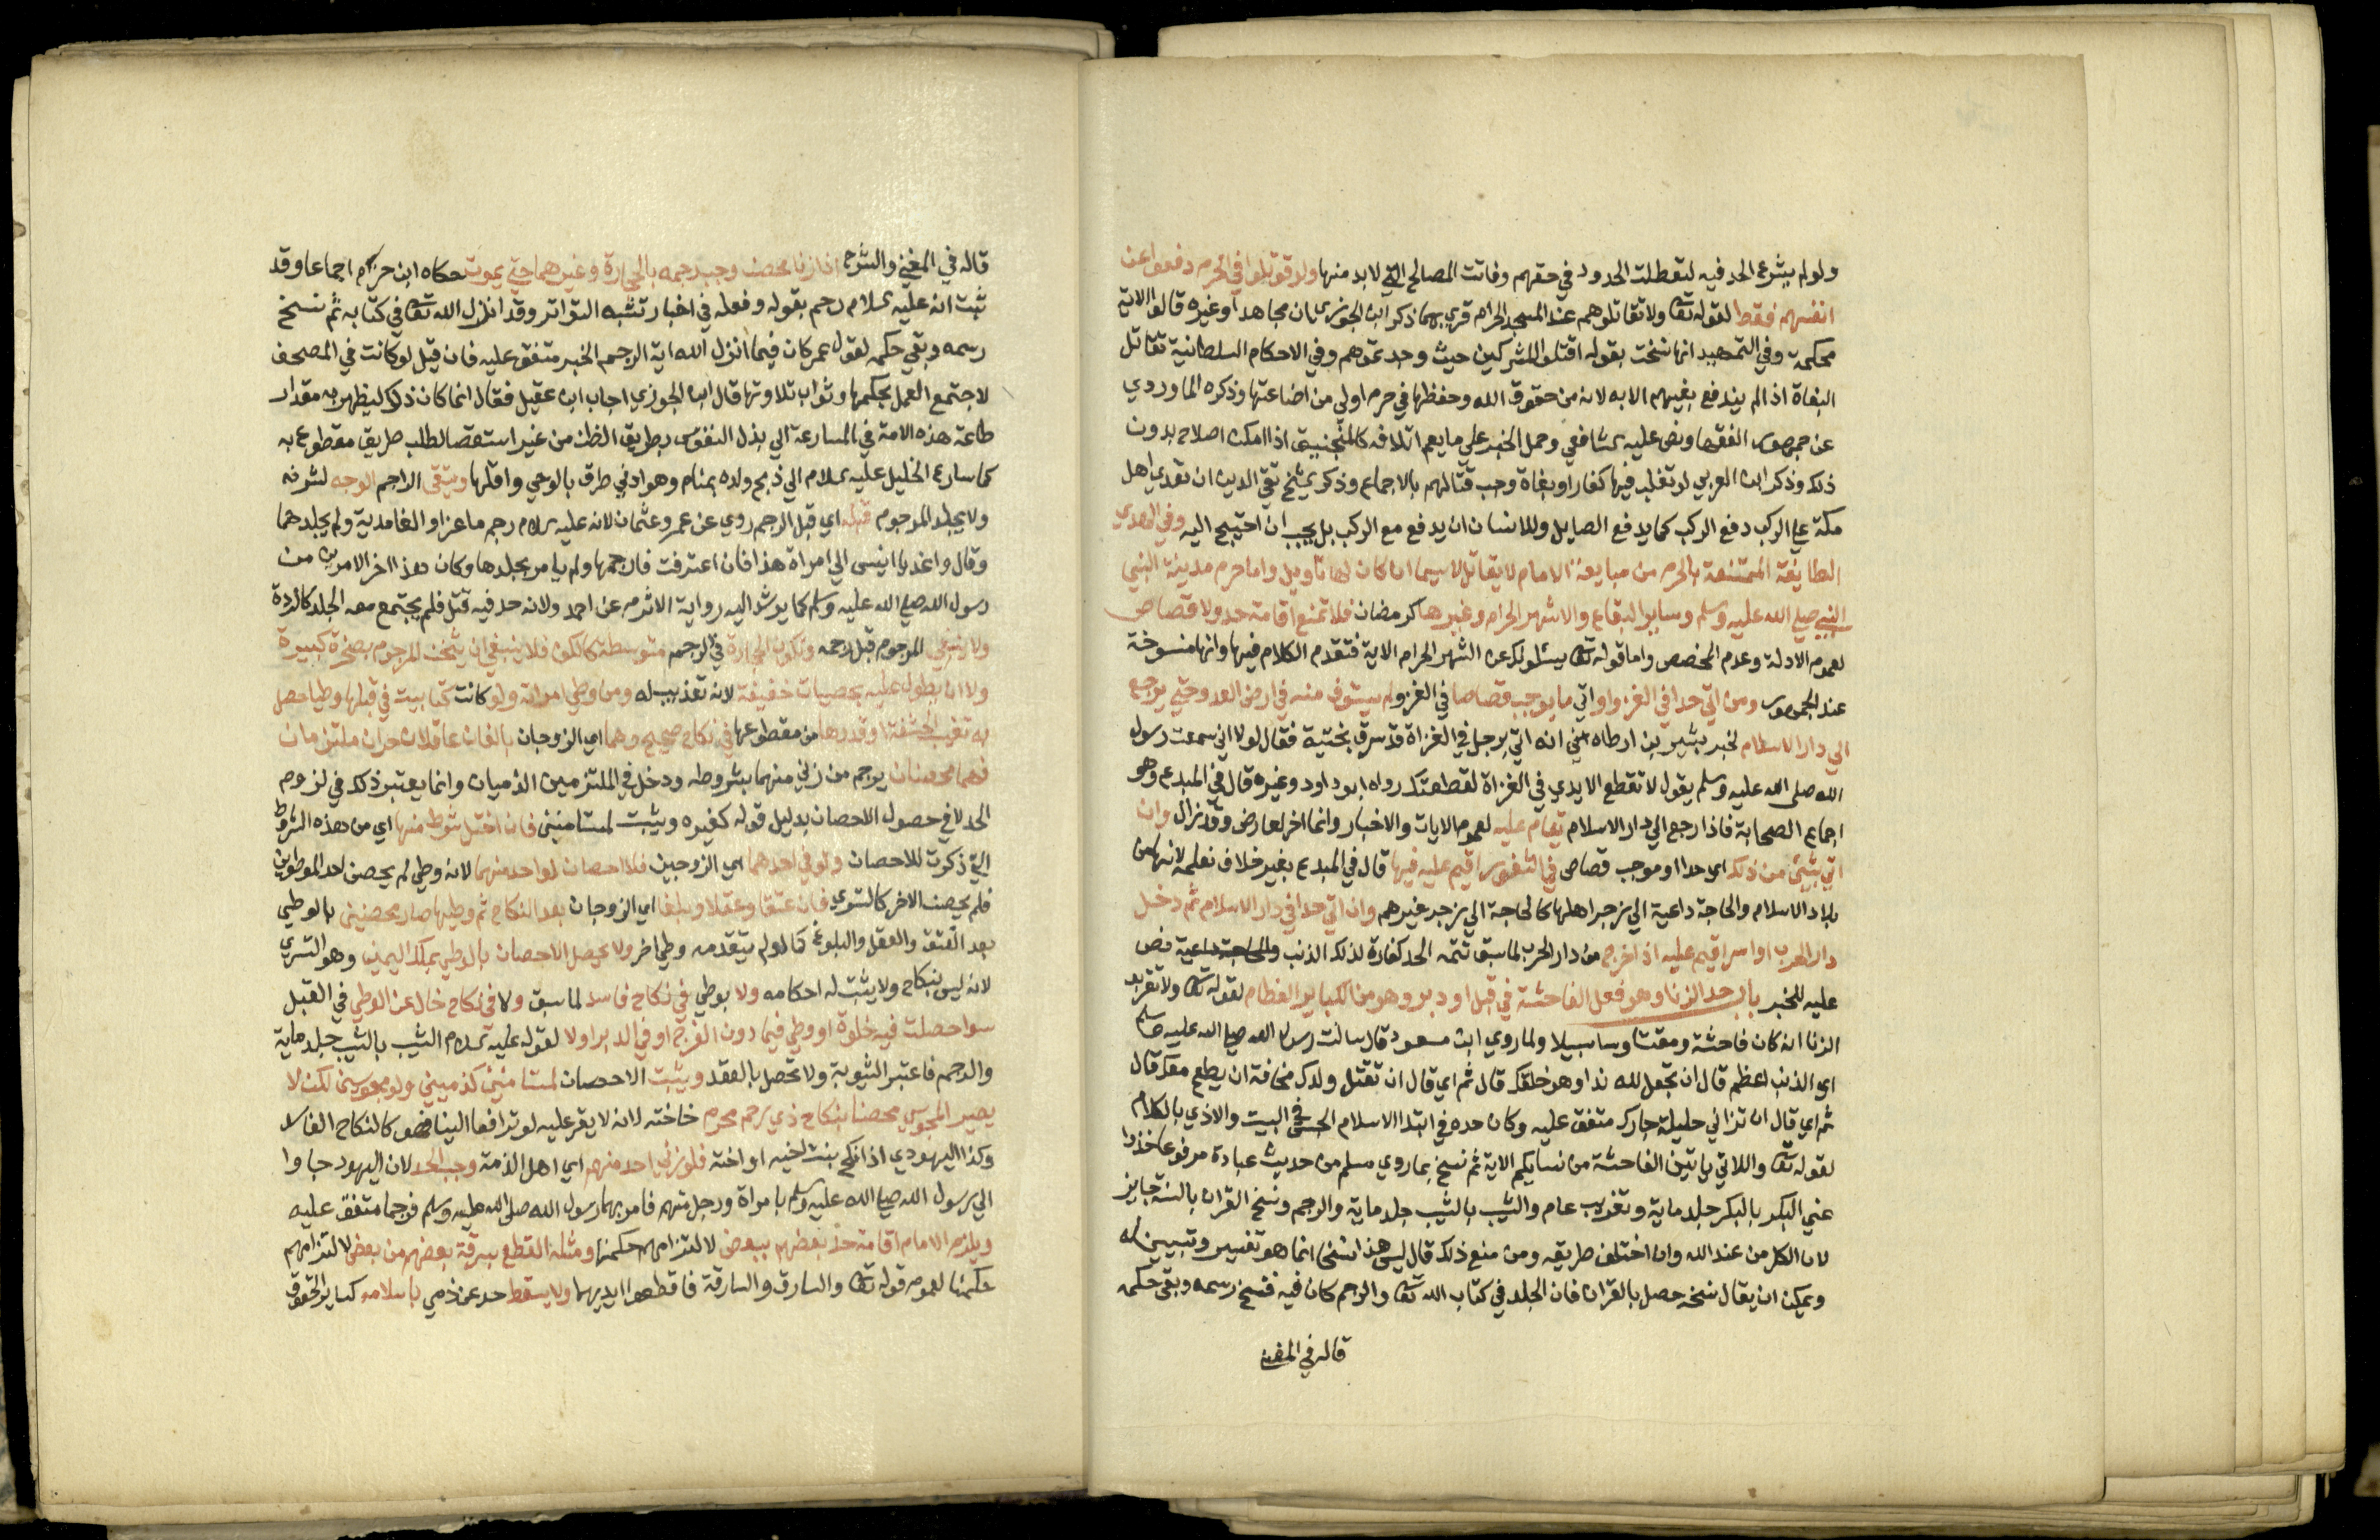 ولو لم يشرع الحد فيه لتعطلت الحدود في حقهم وفاتت المصالح التي لا بد منها ولو قوتلوا في الحرم دفعوا عن
انفسهم فقط لقوله تعا ولا تقاتلوهم عند المسجد الحرام قري بهما ذكر ابن الجوزي ان مجاهدا وغيره قالوا الاية
محكمة وفي التمهيد انها نسخت بقوله اقتلوا المشركين حيث وجدتموهم وفي الاحكام السلطانية تقاتل
البغاة اذا لم يندفع بغيهم الا به لانه من حقوق الله وحفظها في حرمه اولي من اضاعتها وذكره الماوردي
عن جمهور الفقها ونص عليه الشافعي وحمل الخبر علي ما يعم اتلافه كالمنجنيق اذا امكن اصلاح بدون
ذلك وذكر ابن العربي لو تغلب فيها كفار او بغاة وجب قتالهم بالاجماع وذكر الشيخ تقي الدين ان تعدي اهل
مكة علي الركب دفع الركب كما يدفع الصايل وللانسان ان يدفع مع الركب بل يجب ان احتيج اليه وفي الهدي
الطايفة الممتنعة بالحرم من مبايعة الامام لا يقاتل لا سيما ان كان لها تاويل واما حرم مدينة النبي
النبي صلي الله عليه وسلم وساير البقاع والاشهر الحرام وغيرها كرمضان فلا تمنع اقامة حد ولا قصاص
لعموم الادلة وعدم المخصص واما قوله تعا يسئلونك عن الشهر الحرام الاية فتقدم الكلام فيها وانها منسوخة
عند الجمهور ومن اتي حدا في الغزو او اتي ما يوجب قصاصا في الغزو لم يستوف منه في ارض العدو حتي يرجع
الي دار الاسلام لخبر بشير بن ارطاه انه اتي برجل في الغزاة قد سرق بختية فقال لولا اني سمعت رسول
الله صلي الله عليه وسلم يقول لا تقطع الايدي في الغزاة لقطعتك رواه ابو داود وغيره قال في المبدع وهو
اجماع الصحابة فاذا رجع الي دار الاسلام تقام عليه لعموم الايات والاخبار وانما اخر لعارض وقد زال وان
اتي بشيء من ذلك اي حدا او موجب قصاص في الثغور اقيم عليه فيها قال في المبدع بغير خلاف نعلمه لانها من
بلاد الاسلام والحاجة داعية الي زجر اهلها كالحاجة الي زجر غيرهم وان اتي حدا في دار الاسلام ثم دخل
دار الحرب او اسر اقيم عليه اذا خرج من دار الحرب لما سبق تتمه الحد كفارة لذلك الذنب والحاجة داعية نص
عليه للخبر باب حد الزنا وهو فعل الفاحشة في قبل او دبر وهو من الكبائر العظام لقوله تعا ولا تقربوا
الزنا انه كان فاحشة ومقتا وسا سبيلا ولما روي ابن مسعود قال سالت رسول الله صلي الله عليه وسلم
اي الذنب اعظم قال ان تجعل لله ندا وهو خلقك قال ثم اي قال ان تقتل ولدك مخافة ان يطعم معك قال
ثم اي قال ان تزاني حليلة جارك متفق عليه وكان حده في ابتدا الاسلام الحبس في البيت والاذي بالكلام
لقوله تعا واللاتي ياتين الفاحشة من نسايكم الاية ثم نسخ بما روي مسلم من حديث عبادة مرفوعا خذوا
عني البكر بالبكر جلد ماية وتغريب عام والثيب بالثيب جلد ماية والرجم ونسخ القران بالسنة جايز
لان الكل من عند الله وان اختلف طريقه ومن منع ذلك قال ليس هذا نسخا انما هو تفسير وتبيين له
ويمكن ان يقال نسخه حصل بالقران فان الجلد في كتاب الله تعا والرجم كان فيه فنسخ رسمه وبقي حكمه
قاله في المغني
قاله في المغني والشرح اذا زنا محصن وجب رجمه بالحجارة وغيرها حتي يموت حكاه ابن حزم اجماعا وقد
ثبت انه عليه السلام رجم بقوله وفعله في اخبار تشبه التواتر وقد انزل الله تعا في كتابه ثم نسخ
رسمه وبقي حكمه لقول عمر كان فيما انزل الله اية الرجم الخبر متفق عليه فان قيل لو كانت في المصحف
لاجتمع العمل بحكمها وثواب تلاوتها قال ابن الجوزي اجاب ابن عقيل فقال انما كان ذلك ليظهر به مقدار
طاعة هذه الامة في المسارعة الي بذل النفوس بطريق الظن من غير استقصا لطلب طريق مقطوع به
كما سارع الخليل عليه السلام الي ذبح ولده بمنام وهو ادني طرق بالوحي واقلها ويتقي الراجم الوجه لشرفه
ولا يجلد المرجوم قبله اي قبل الرجم روي عن عمر وعثمان لانه عليه السلام رجم ماعزا والغامدية ولم يجلدهما
وقال واغد يا انيس الي امراة هذا فان اعترفت فارجمها ولم يامر بجلدها وكان هذا اخر الامرين من
رسول الله صلي الله عليه وسلم كما يرشد اليه رواية الاثرم عن احمد ولانه حد فيه قتل فلم يجتمع معه الجلد كالردة
ولا ينفي المرجوم قبل رجمه وتكون الحجارة في الرجم متوسطة كالكف فلا ينبغي ان يثخن المرجوم بصخرة كبيرة
ولا ان يطول عليه بحصيات خفيفة لانه تعذيب له ومن وطي امراته ولو كانت كتابية في قبلها وطيا حصل
به تغييب الحشفة او قدرها من مقطوعها في نكاح صحيح وهما اي الزوجان بالغان عاقلان حران ملتزمان
فهما محصنان يرجم من زني منهما بشروطه ودخل في الملتزمين الذميان وانما يعتبر ذلك في لزوم
الحد لا في حصول الاحصان بدليل قوله كغيره ويثبت لمستامنين فان اختل شرط منها اي من هذه الشروط
التي ذكرت للاحصان ولو في احدهما اي الزوجين فلا احصان لواحد منهما لانه وطي لم يحصن احد الموطوين
فلم يحصن الاخر كالتسري فان عتقا وعقلا وبلغا اي الزوجان بعد النكاح ثم وطيها صارا محصنين بالوطي
بعد العتق والعقل والبلوغ كما لو لم يتقدمه وطي اخر ولا يحصل الاحصان بالوطي بملك اليمين وهو التسري
لانه ليس بنكاح ولا يثبت له احكامه ولا بوطي في نكاح فاسد لما سبق ولا في نكاح خال عن الوطي في القبل
سوا حصلت فيه خلوة او وطي فيما دون الفرج او في الدبر او لا لقوله عليه السلام الثيب بالثيب جلد ماية
والرجم فاعتبر الثيوبة ولا تحصل بالعقد ويثبت الاحصان لمستامنين كذميين ولو مجوسين لكن لا
يصير المجوسي محصنا بنكاح ذي رحم محرم كاخته لانه لا يقر عليه لو ترافعا الينا فهو كالنكاح الفاسد
وكذا اليهودي اذا نكح بنت اخيه او اخته فلو زني احد منهم اي اهل الذمة وجب الحد لان اليهود جاوا
الي رسول الله صلي الله عليه وسلم بامراة ورجل منهم فامر بهما رسول الله صلي الله عليه وسلم فرجما متفق عليه
ويلزم الامام اقامة حد بعضهم ببعض لالتزامهم حكمنا ومثله القطع بسرقة بعضهم من بعض لالتزامهم
حكمنا لعموم قوله تعا والسارق والسارقة فاقطعوا ايديهما ولا يسقط حد عن ذمي باسلامه كساير الحقوق